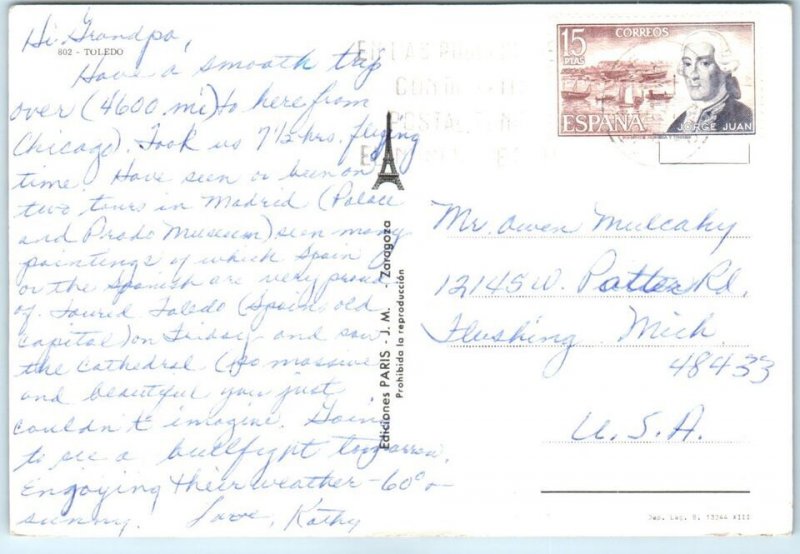 Hi Grandpa,
802 - TOLEDO
Have a smooth trip
over (4600 mi) to here from
Chicago). Took us 7½ hrs. flying
time. Have seen or been on
two tours in Madrid (Palace
and Prado Museum) seen many
paintings of which Spain
or the Spanish are very proud
of. Toured Toledo (Spain's old
capital) on Friday and saw
the Cathedral (so massive
and beautiful you just
couldn't imagine. Going
to see a bullfight tomorrow.
Enjoying their weather - 60° &
sunny. Love, Kathy
Ediciones PARIS - J. M. - Zaragoza
Prohibida la reproducción
15
PTAS
CORREOS
ESPAÑA
JORGE JUAN
Mr. Owen Mulcahy
12145 W. Potter Rd.
Flushing, Mich
48433
U.S.A.
Dep. Leg. B. 53244 XIII